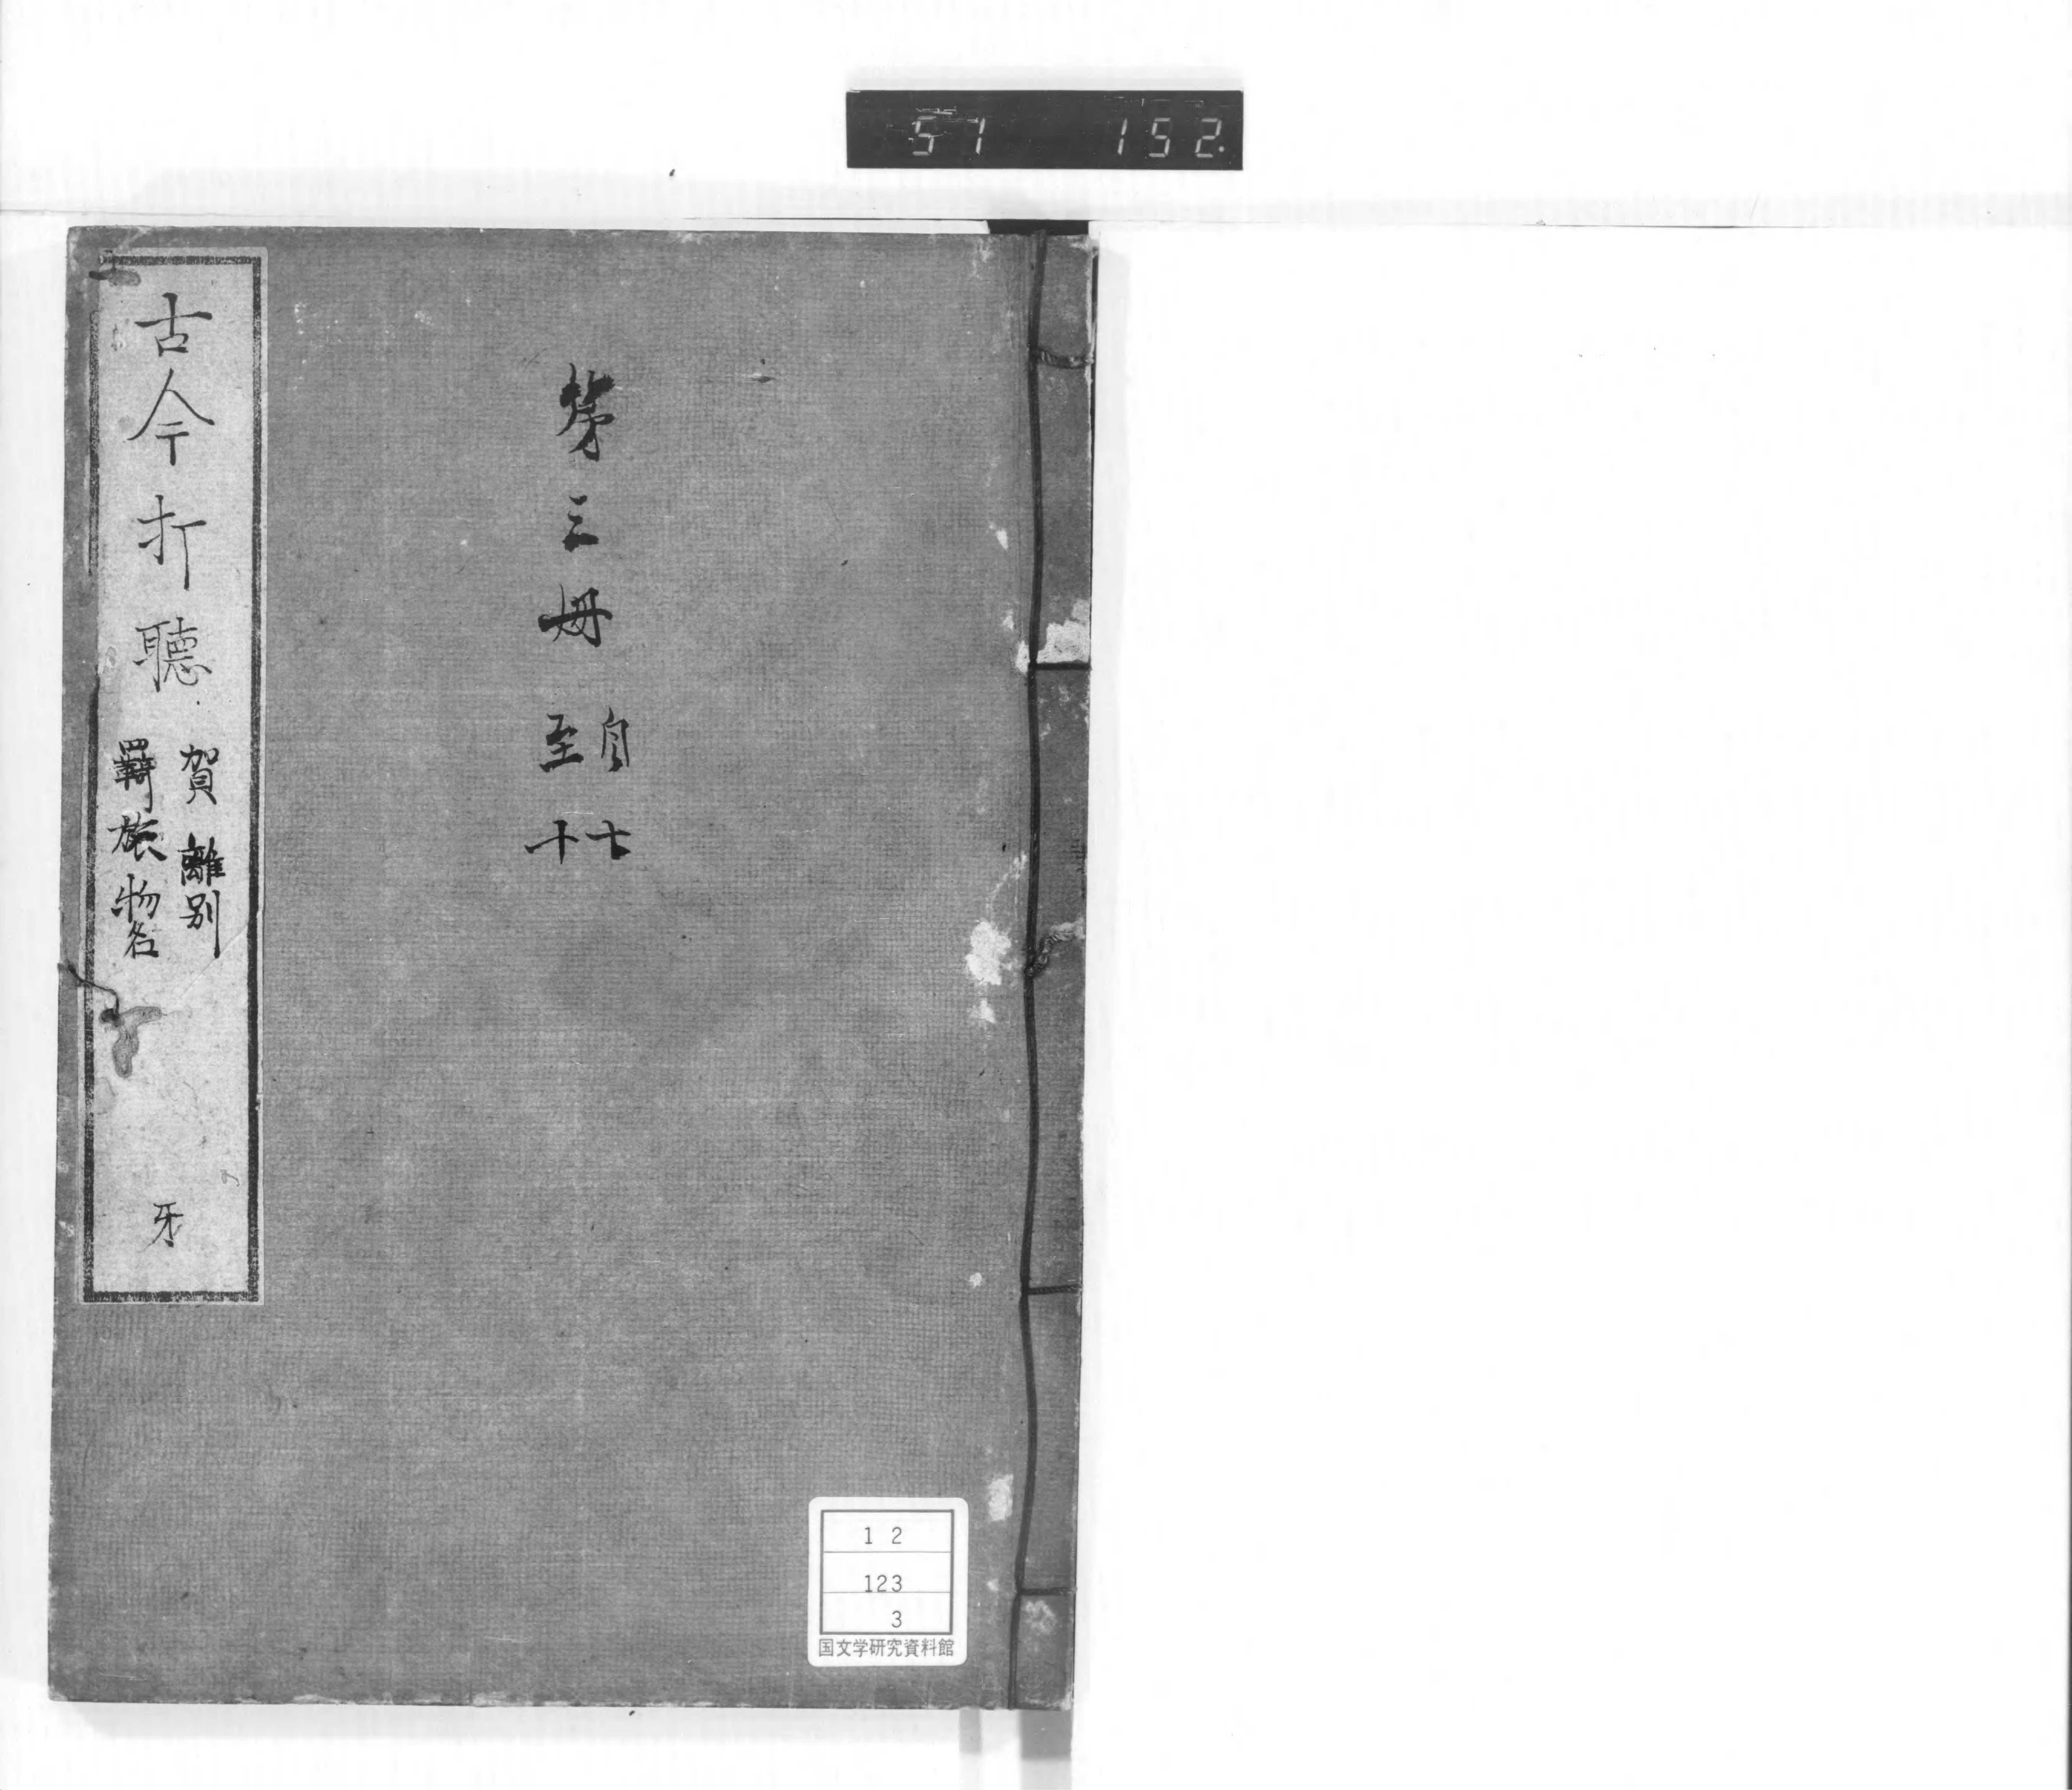 57 152.
第三册
自七
至十
古今打聴
賀離別
羇旅物名
牙
12
123
3
国文学研究資料館